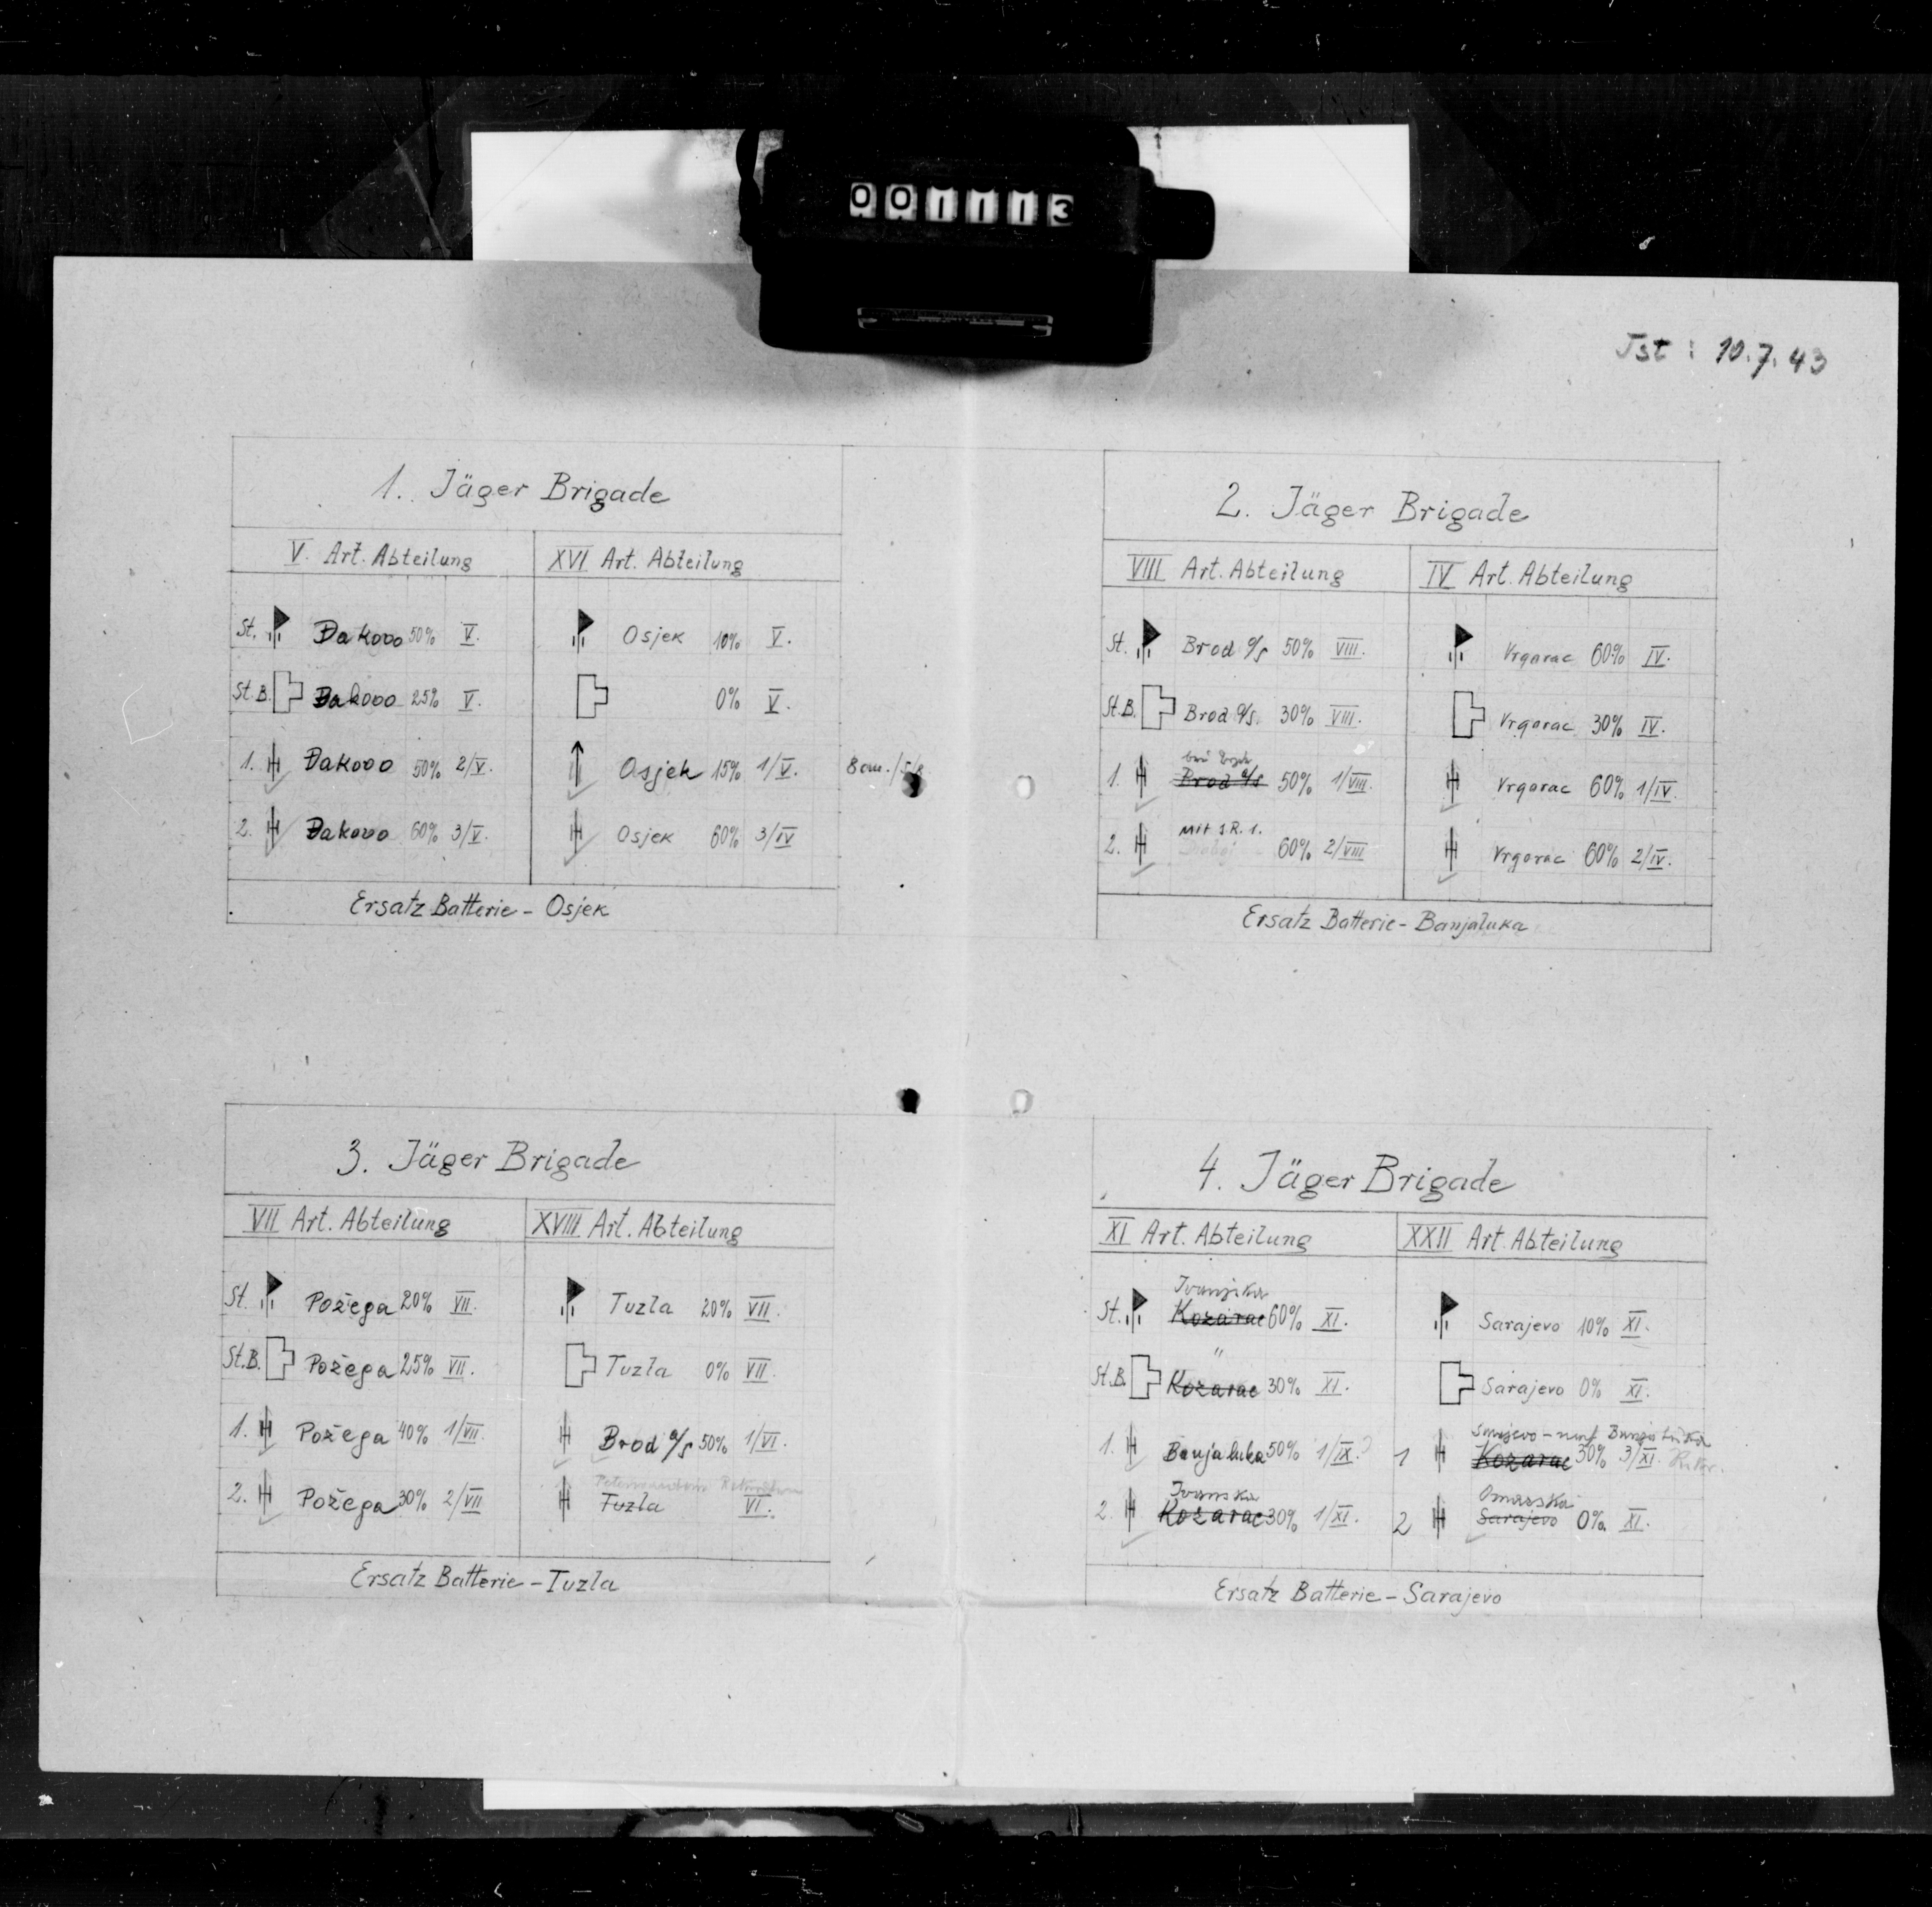 001113
Jst : 10.7.43
1. Jäger Brigade
V. Art. Abteilung
XVI Art. Abteilung
St. Đakovo 50% V.
Osjek 10% V.
St.B. Đakovo 25% V.
0% V.
1. Đakovo 50% 2/V.
Osjek 15% 1/V.
8 cm./5/8
2. Đakovo 60% 3/V.
Osjek 60% 3/IV
Ersatz Batterie - Osjek
2. Jäger Brigade
VIII Art. Abteilung
IV Art. Abteilung
St. Brod a/s 50% VIII.
Vrgorac 60% IV.
St.B. Brod a/s. 30% VIII.
Vrgorac 30% IV.
1. Brod a/s 50% 1/VIII.
Vrgorac 60% 1/IV.
Mit J.R. 1.
2. 60% 2/VIII
Vrgorac 60% 2/IV.
Ersatz Batterie - Banjaluka
3. Jäger Brigade
VII Art. Abteilung
XVIII Art. Abteilung
St. Požega 20% VII.
Tuzla 20% VII.
St.B. Požega 25% VII.
Tuzla 0% VII.
1. Požega 40% 1/VII.
Brod a/s 50% 1/VI.
2. Požega 30% 2/VII
Tuzla VI.
Ersatz Batterie - Tuzla
4. Jäger Brigade
XI Art. Abteilung
XXII Art. Abteilung
Ivanjska
St. Kozarac 60% XI.
Sarajevo 10% XI.
"
St.B. Kozarac 30% XI.
Sarajevo 0% XI.
Sarajevo - Banja Luka
1. Banjaluka 50% 1/IX.
1 Kozarac 30% 3/XI.
Ivanska
Omarska
2. Kozarac 30% 1/XI.
2 Sarajevo 0% XI.
Ersatz Batterie - Sarajevo